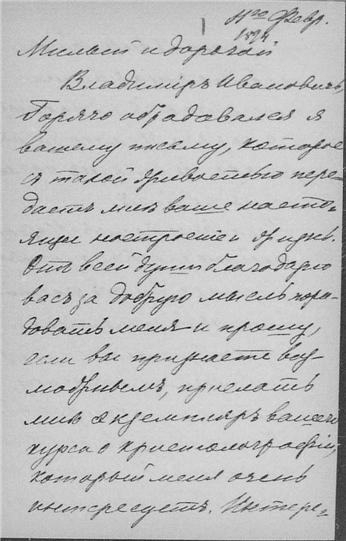 11го Февр.
1894
Милый и дорогой
Владимiръ Ивановичъ,
Горячо обрадовался я
вашему письму, которое
съ такой живостью пере-
даетъ мнѣ ваше насто-
ящее настроенiе и жизнь.
Отъ всей души благодарю
васъ за добрую мысль пора-
довать меня и прошу,
если вы признаете воз-
можнымъ, прислать
мнѣ экземпляръ вашего
курса о кристаллографiи,
который меня очень
интересуетъ. Интере-